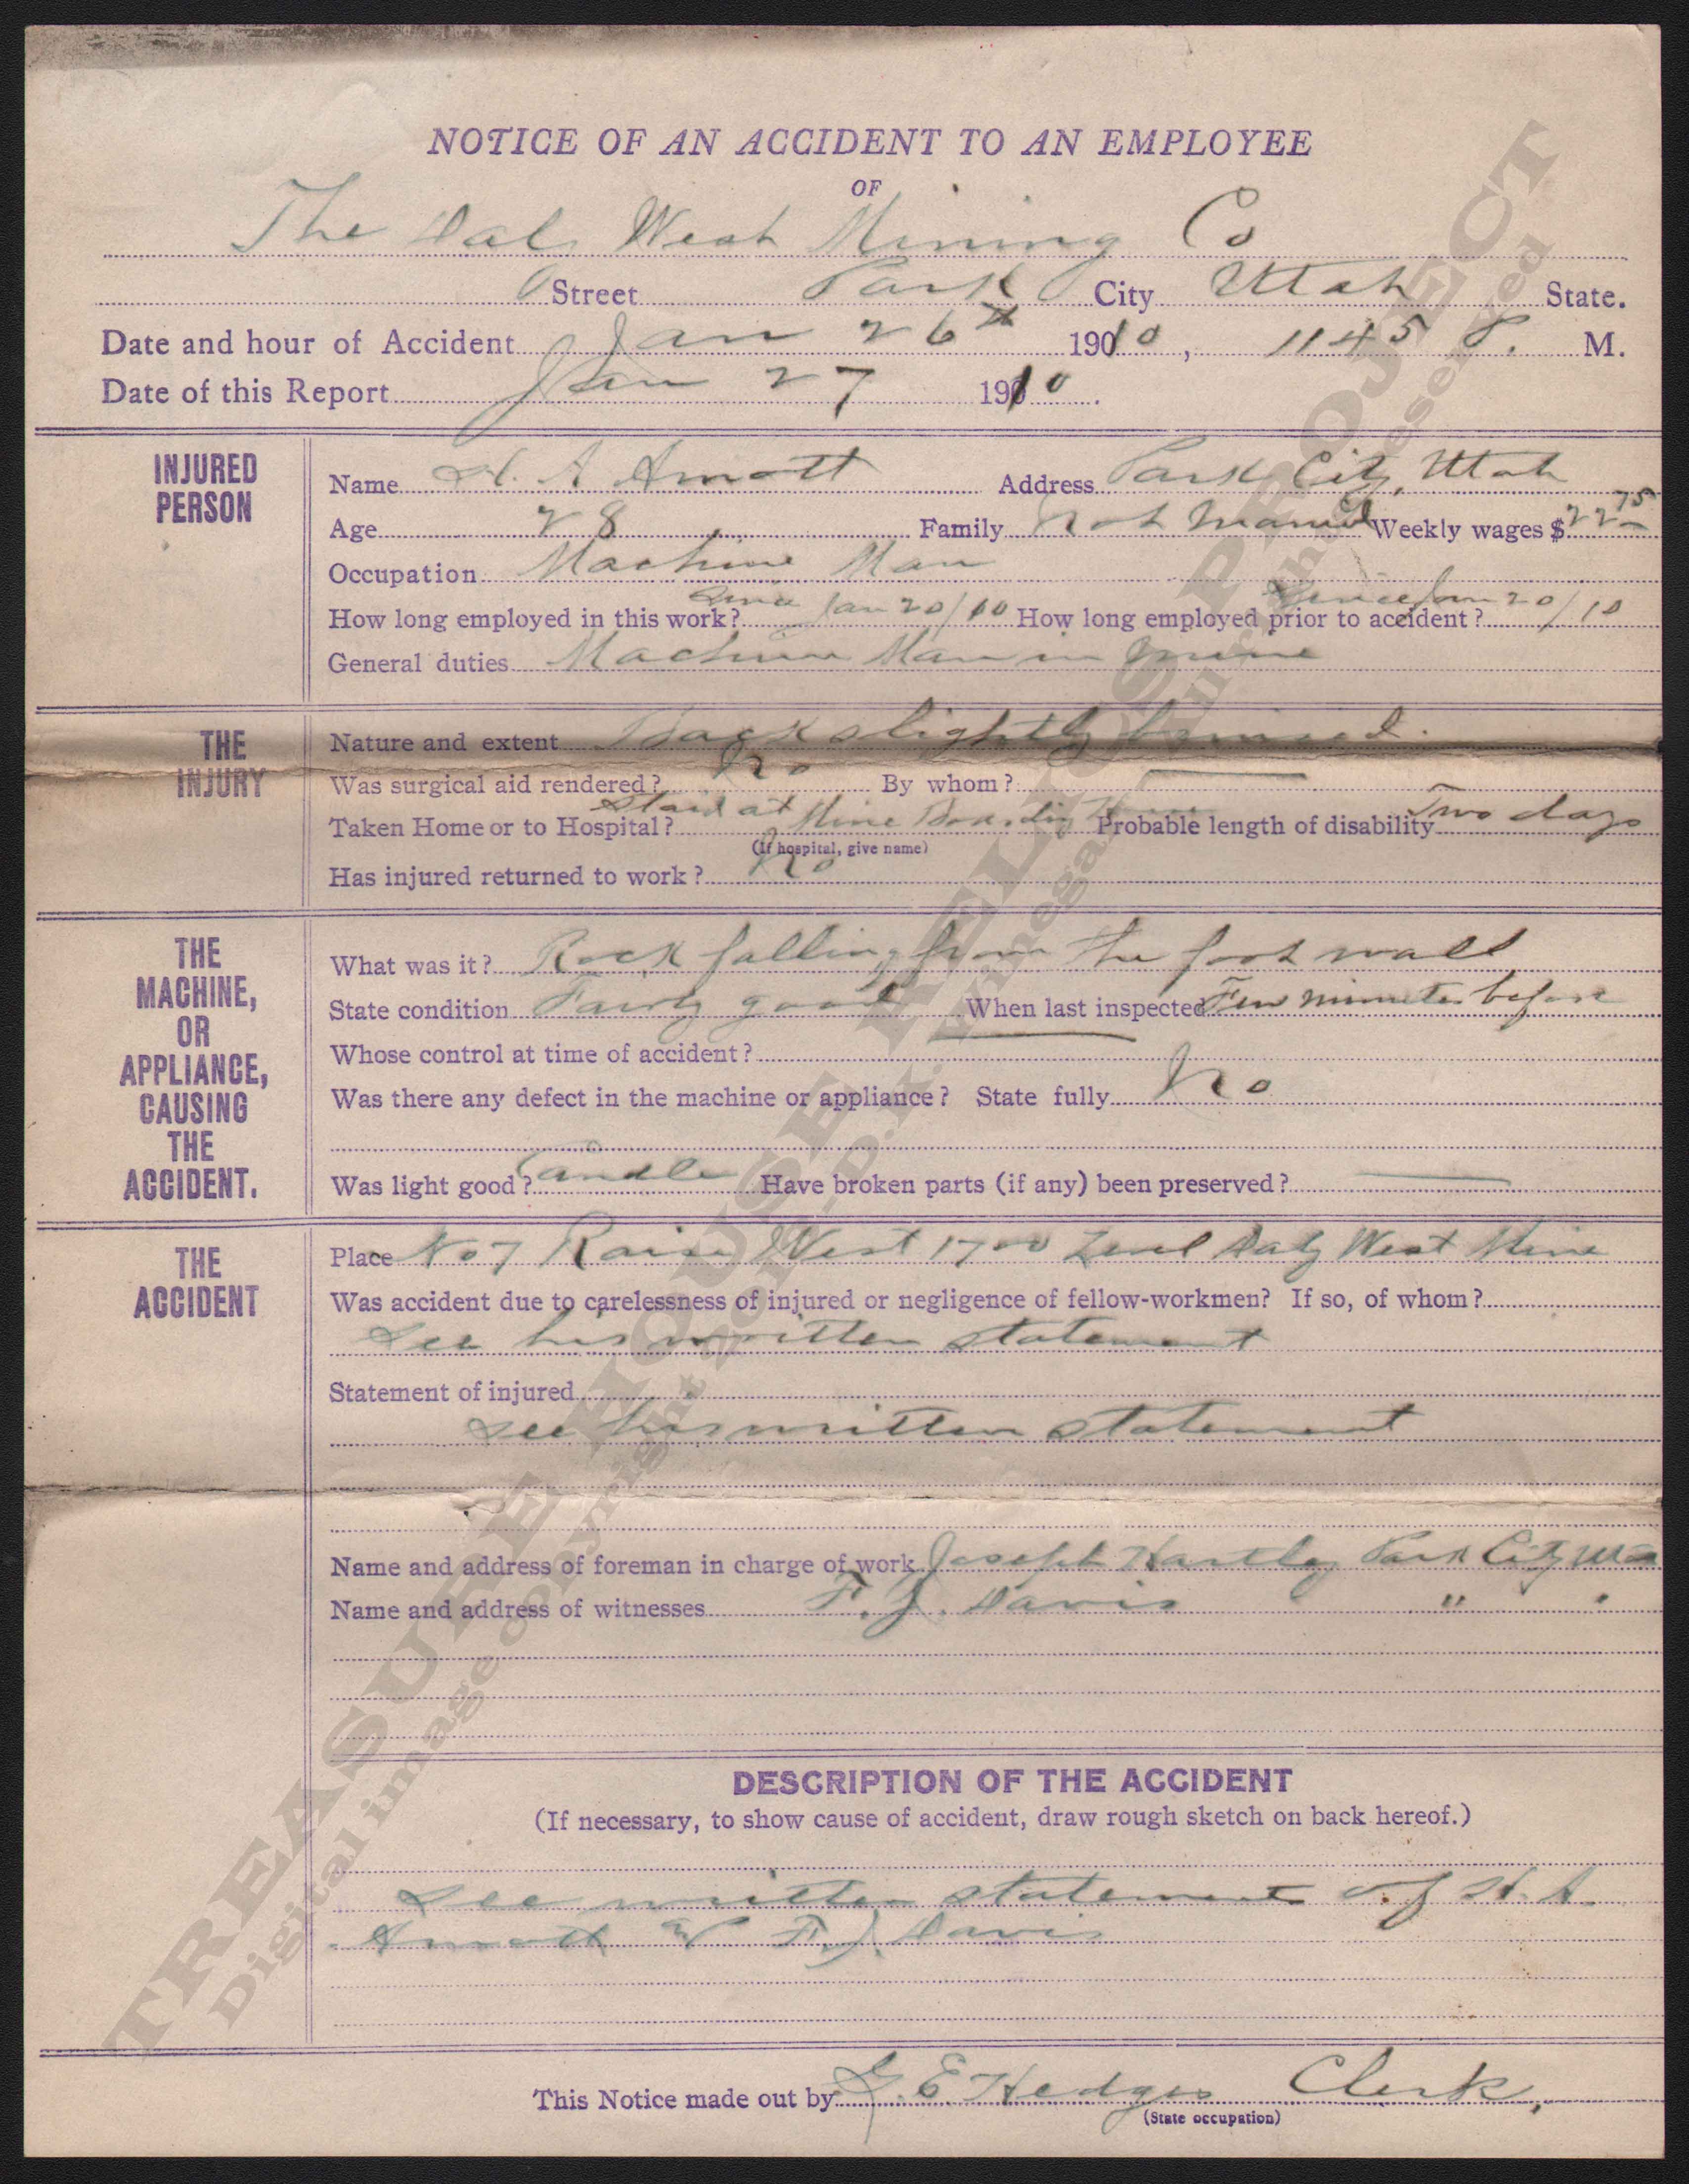 NOTICE OF AN ACCIDENT TO AN EMPLOYEE
OF
The Daly West Mining Co
Street Park City Utah State.
Date and hour of Accident Jan 26th 1910, 1145 P. M.
Date of this Report Jan 27 1910.
INJURED PERSON
Name H. A Arnott Address Park City, Utah
Age 28 Family Not Married Weekly wages $22 75
Occupation Machine Man
How long employed in this work? Since Jan 20/10 How long employed prior to accident? Since Jan 20/10
General duties Machine Man in Mine
THE INJURY
Nature and extent Back slightly bruised.
Was surgical aid rendered? No By whom? —
Taken Home or to Hospital? Staid at Mine Boarding House Probable length of disability Two days
(If hospital, give name)
Has injured returned to work? No
THE MACHINE, OR APPLIANCE, CAUSING THE ACCIDENT.
What was it? Rock falling from the foot wall
State condition Fairly good When last inspected Few minutes before
Whose control at time of accident?
Was there any defect in the machine or appliance? State fully No
Was light good? Candle Have broken parts (if any) been preserved? —
THE ACCIDENT
Place No 7 Raise West 1700 Level Daly West Mine
Was accident due to carelessness of injured or negligence of fellow-workmen? If so, of whom?
See his written statement
Statement of injured
See his written statement
Name and address of foreman in charge of work Joseph Hartley Park City Uta
Name and address of witnesses F. J. Davis " "
DESCRIPTION OF THE ACCIDENT
(If necessary, to show cause of accident, draw rough sketch on back hereof.)
See written statement of H. A.
Arnott & F. J. Davis
This Notice made out by G. E Hedges Clerk,
(State occupation)
TREASURE HOUSE RELICS PROJECT